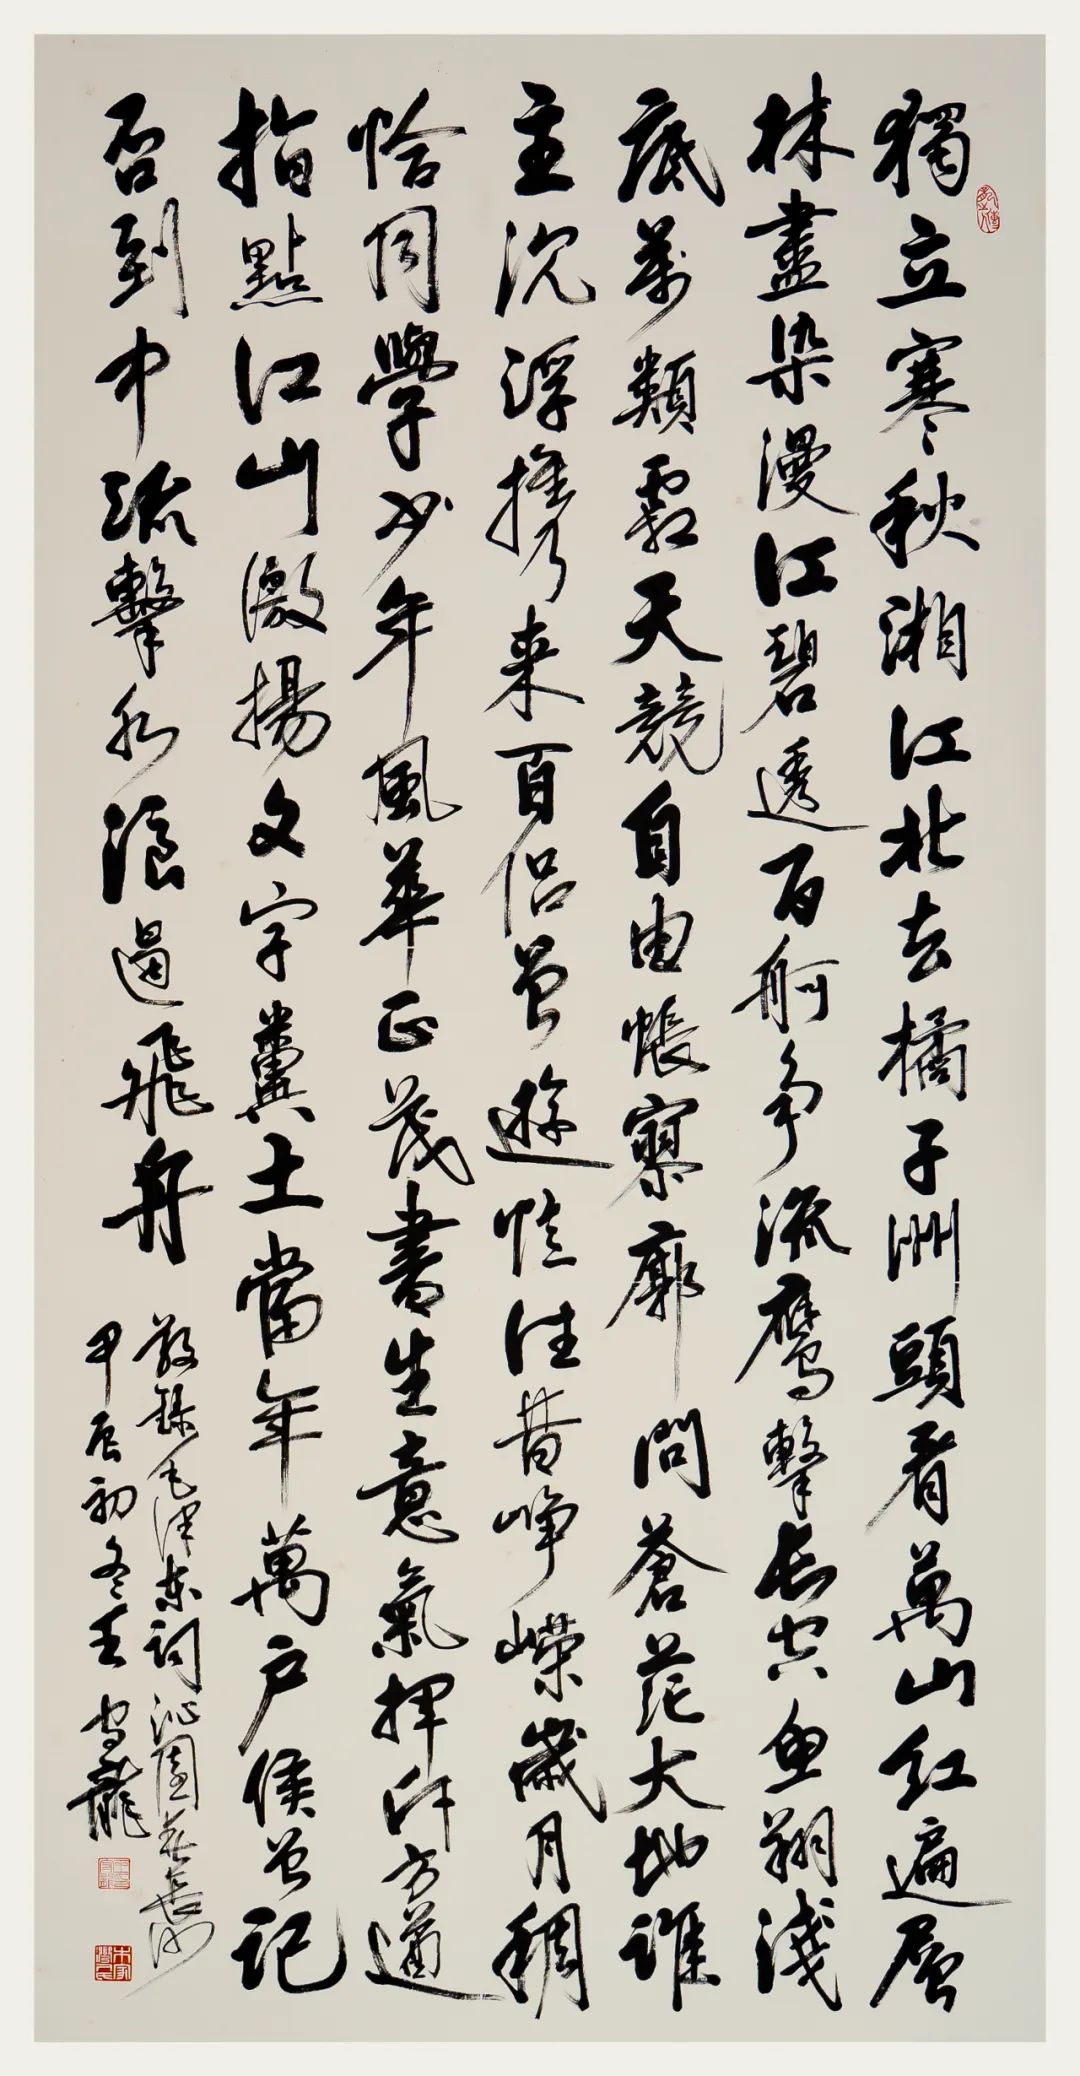 獨立寒秋湘江北去橘子洲頭看萬山紅遍層
林盡染漫江碧透百舸争流鹰擊長空魚翔淺
底萬類霜天競自由悵寥廓問蒼茫大地誰
主沉浮携来百侣曾遊憶往昔崢嶸歲月稠
恰同學少年風華正茂書生意氣揮斥方遒
指點江山激揚文字糞土當年萬户侯曾記
否到中流擊水浪遏飛舟
敬録毛澤東詞沁園春長沙
甲辰初冬王龍